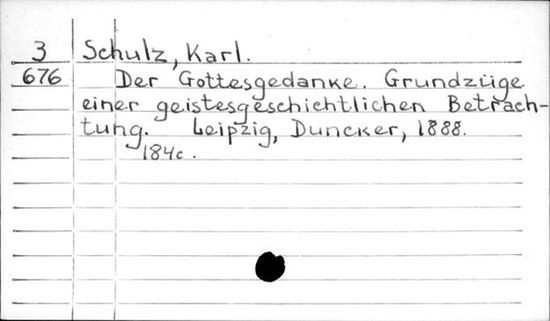 3 Schulz, Karl.
676 Der Gottesgedanke. Grundzüge
einer geistesgeschichtlichen Betrach-
tung. Leipzig, Duncker, 1888.
184c.